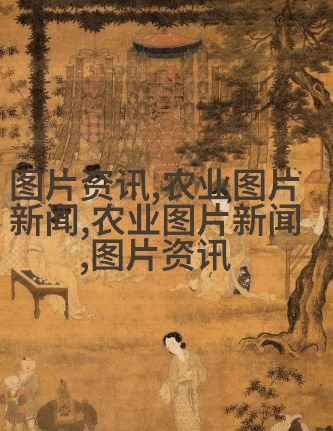 图片资讯,农业图片
新闻,农业图片新闻
,图片资讯